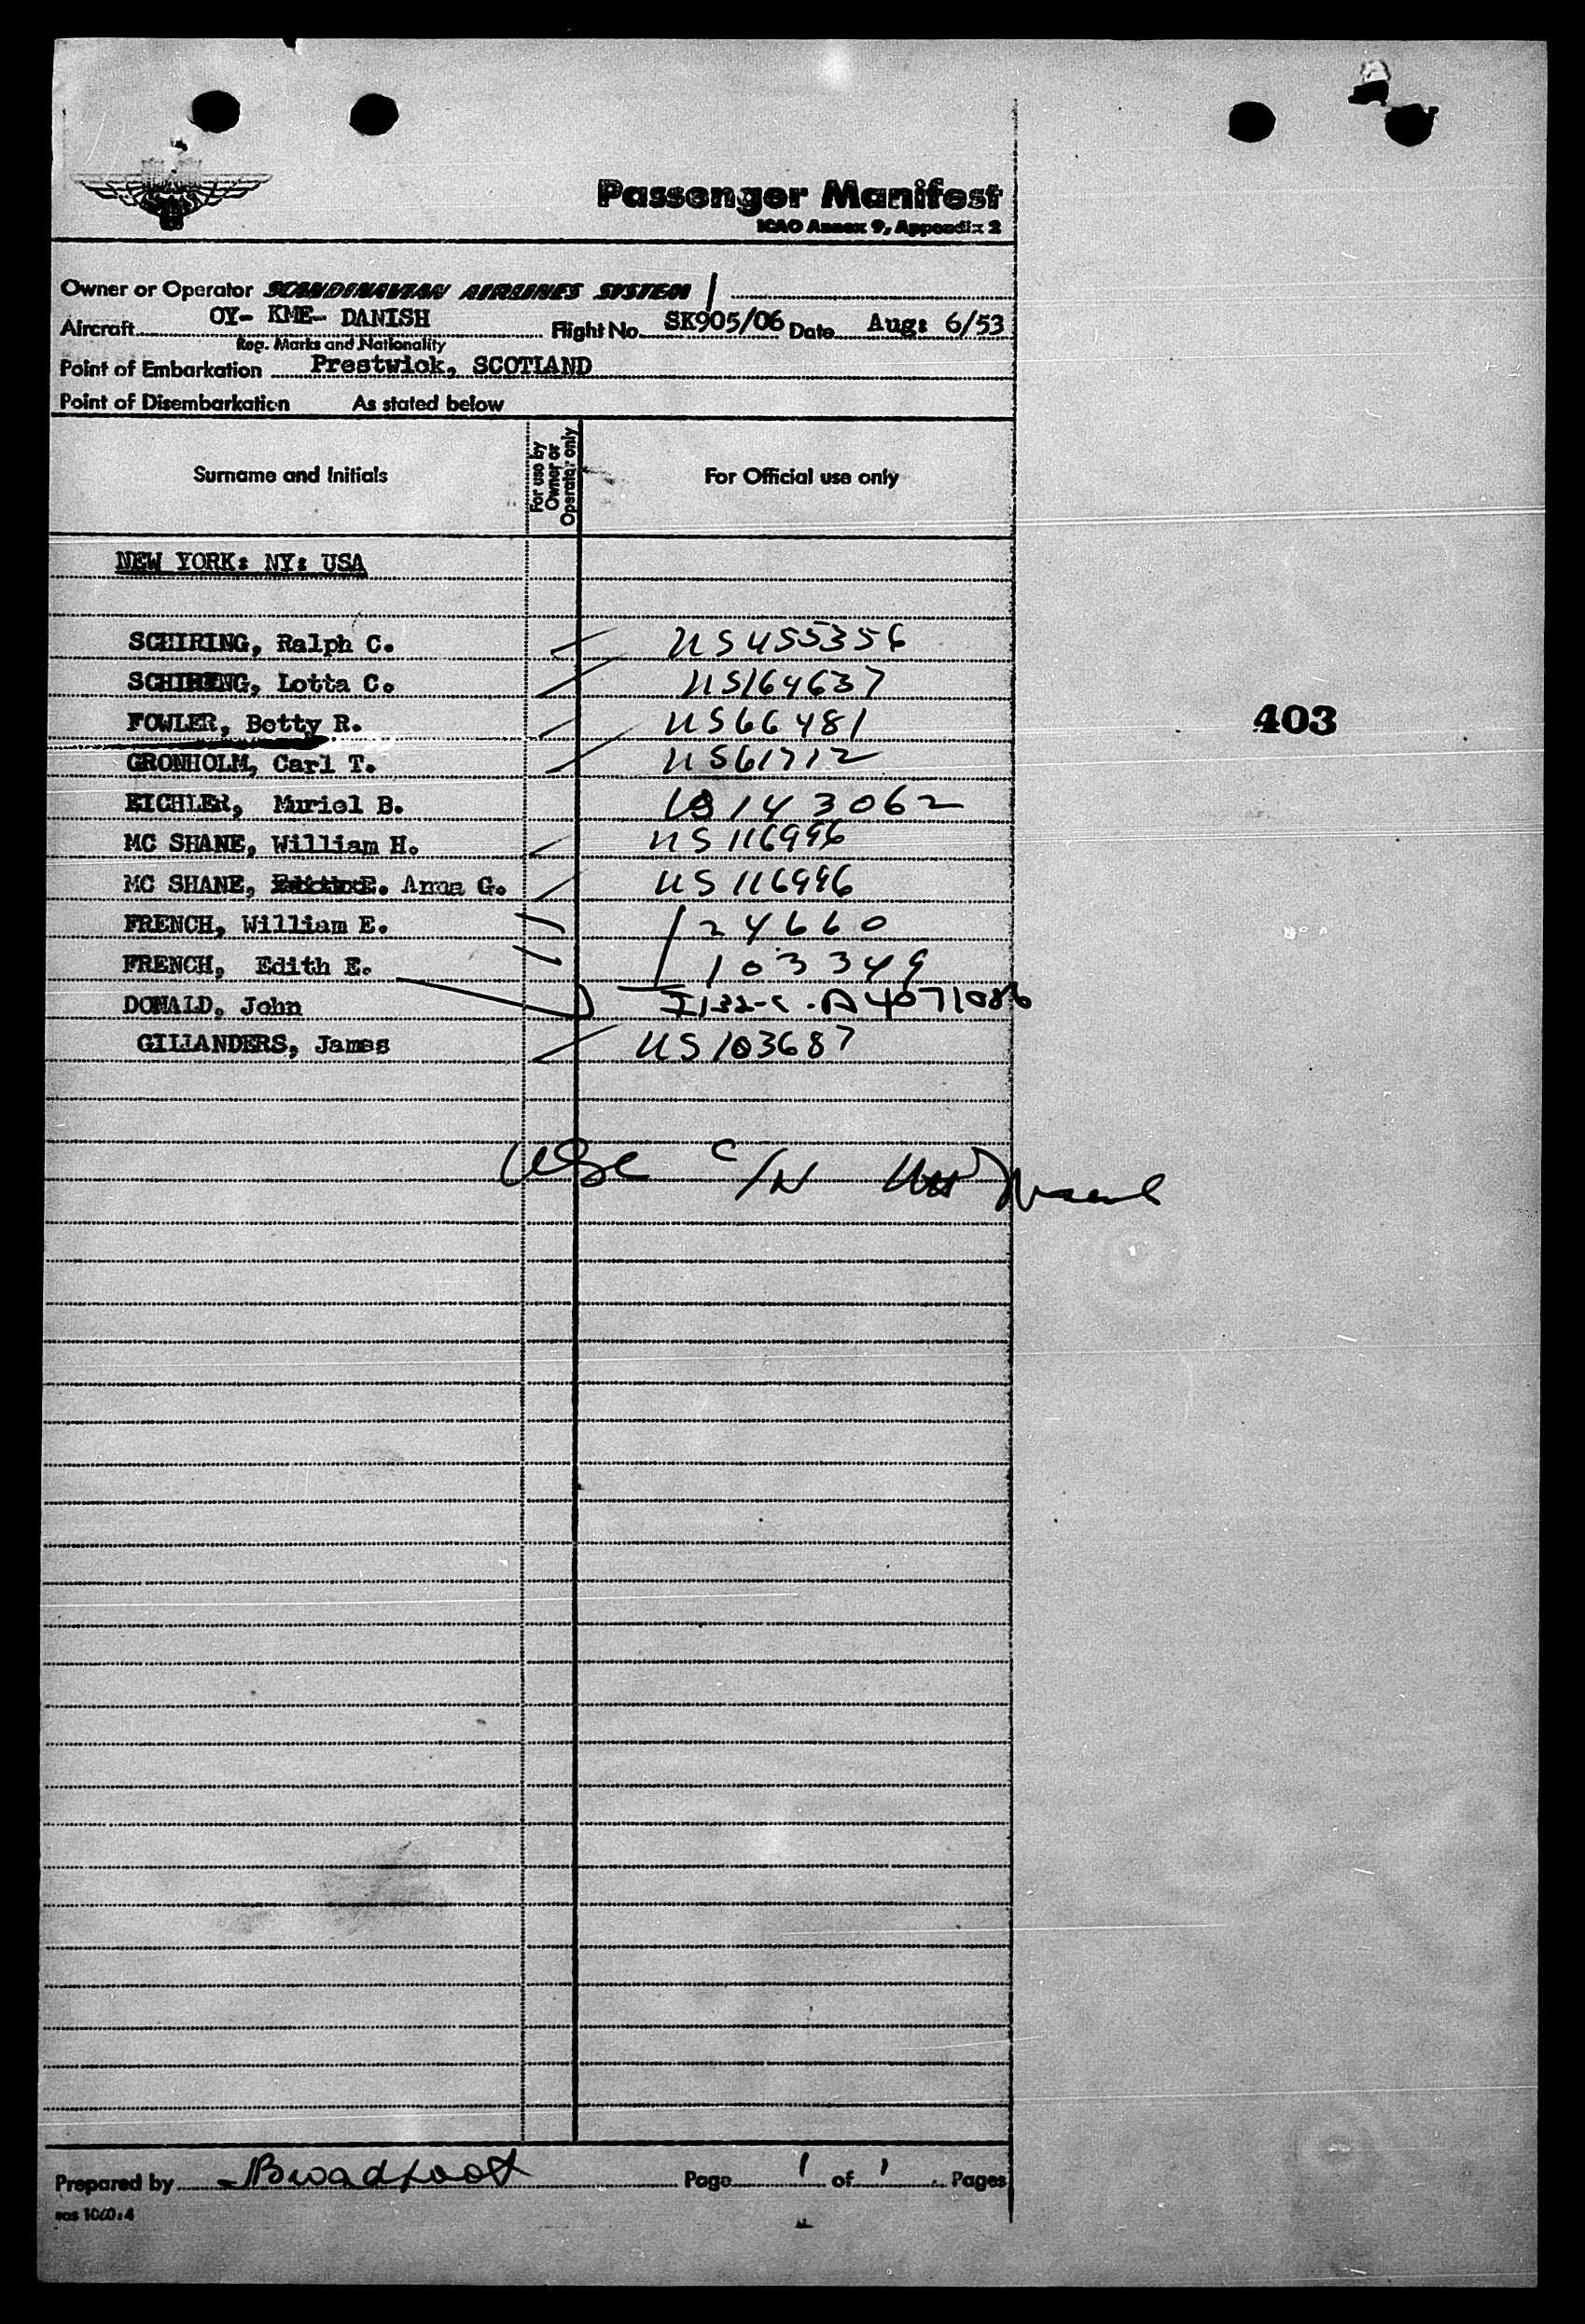 Passenger Manifest
ICAO Annex 9, Appendix 2
Owner or Operator SCANDINAVIAN AIRLINES SYSTEM
Aircraft OY- KME- DANISH Flight No. SK905/06 Date Aug: 6/53
Reg. Marks and Nationality
Point of Embarkation Prestwick, SCOTLAND
Point of Disembarkation As stated below
Surname and Initials For use by Owner or Operator only For Official use only
NEW YORK: NY: USA
SCHIRING, Ralph C. US455356
SCHIRING, Lotta C. US164637
FOWLER, Betty R. US66481
403
GRONHOLM, Carl T. US61712
EICHLER, Muriel B. US143062
MC SHANE, William H. US116996
MC SHANE, Anna G. US116996
FRENCH, William E. 24660
FRENCH, Edith E. 103349
DONALD, John I132-c. A4071086
GILLANDERS, James US103687
USC C/N
Prepared by Broadfoot Page 1 of 1 Pages
sas 1060:4